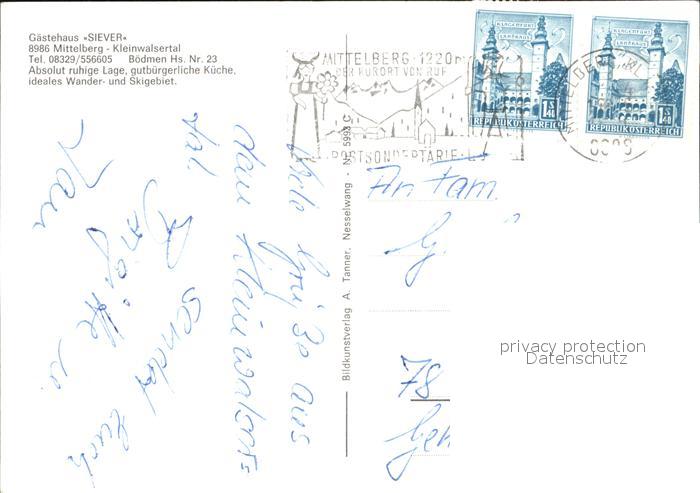 Gästehaus »SIEVER«
8986 Mittelberg - Kleinwalsertal
Tel. 08329/556605 Bödmen Hs. Nr. 23
Absolut ruhige Lage, gutbürgerliche Küche,
ideales Wander- und Skigebiet.
MITTELBERG · 1220m
DER KURORT VON RUF
POSTSONDERTARIF
KLAGENFURT
LANDHAUS
1S40
REPUBLIK ÖSTERREICH
KLAGENFURT
LANDHAUS
1S40
REPUBLIK ÖSTERREICH
Bildkunstverlag A. Tanner, Nesselwang - Nr. 5993 C
Viele Grüße aus
dem Kleinwalser=
tal
sendet Euch
An Fam.
G.
78
privacy protection
Datenschutz